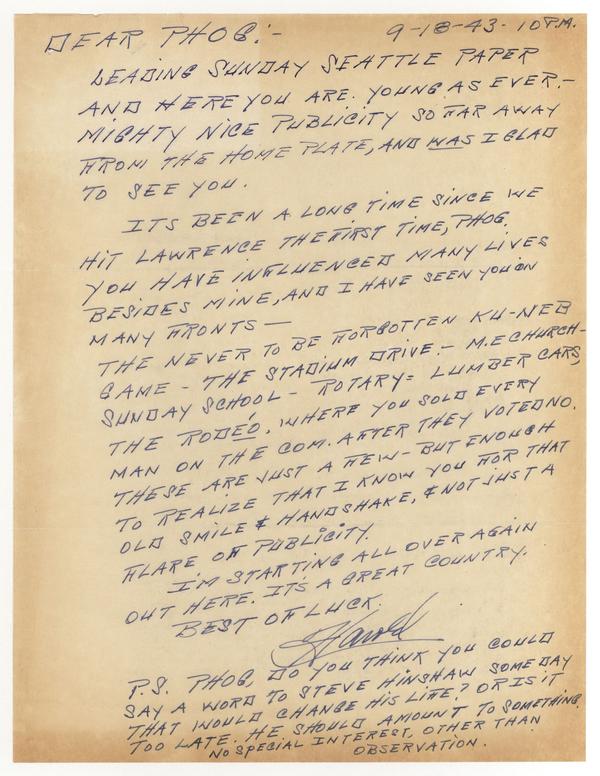 DEAR PHOG:- 9-18-43- 10 P.M.
LEADING SUNDAY SEATTLE PAPER
AND HERE YOU ARE. YOUNG AS EVER.-
MIGHTY NICE PUBLICITY SO FAR AWAY
FROM THE HOME PLATE, AND WAS I GLAD
TO SEE YOU.
ITS BEEN A LONG TIME SINCE WE
HIT LAWRENCE THE FIRST TIME, PHOG.
YOU HAVE INFLUENCED MANY LIVES
BESIDES MINE, AND I HAVE SEEN YOU ON
MANY FRONTS —
THE NEVER TO BE FORGOTTEN KU-NEB
GAME - THE STADIUM DRIVE.- M.E CHURCH-
SUNDAY SCHOOL - ROTARY= LUMBER CARS,
THE RODEO. WHERE YOU SOLD EVERY
MAN ON THE COM. AFTER THEY VOTED NO.
THESE ARE JUST A FEW - BUT ENOUGH
TO REALIZE THAT I KNOW YOU FOR THAT
OLD SMILE & HANDSHAKE, & NOT JUST A
FLARE OF PUBLICITY.
I'M STARTING ALL OVER AGAIN
OUT HERE. IT'S A GREAT COUNTRY.
BEST OF LUCK.
Harold
P.S. PHOG, DO YOU THINK YOU COULD
SAY A WORD TO STEVE HINSHAW SOMEDAY
THAT WOULD CHANGE HIS LIFE? OR IS IT
TOO LATE. HE SHOULD AMOUNT TO SOMETHING.
NO SPECIAL INTEREST, OTHER THAN
OBSERVATION.